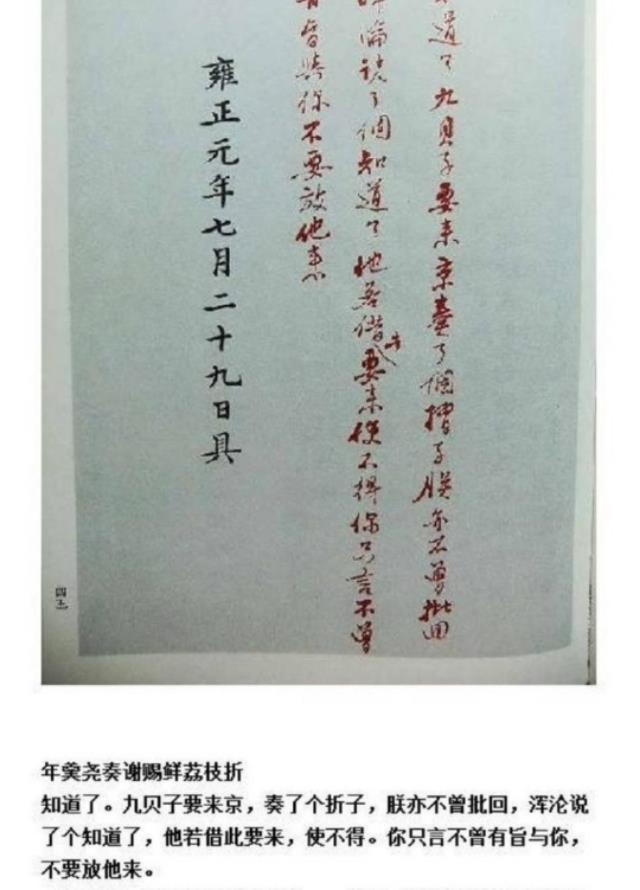 道了九貝子要来京奏了個摺子朕亦不曾批回
淪説了個知道了他若借此要来使不得你只言不曾
有旨與你不要放他来
雍正元年七月二十九日具
年羹尧奏谢赐鲜荔枝折
知道了。九贝子要来京，奏了个折子，朕亦不曾批回，浑沦说
了个知道了，他若借此要来，使不得。你只言不曾有旨与你，
不要放他来。